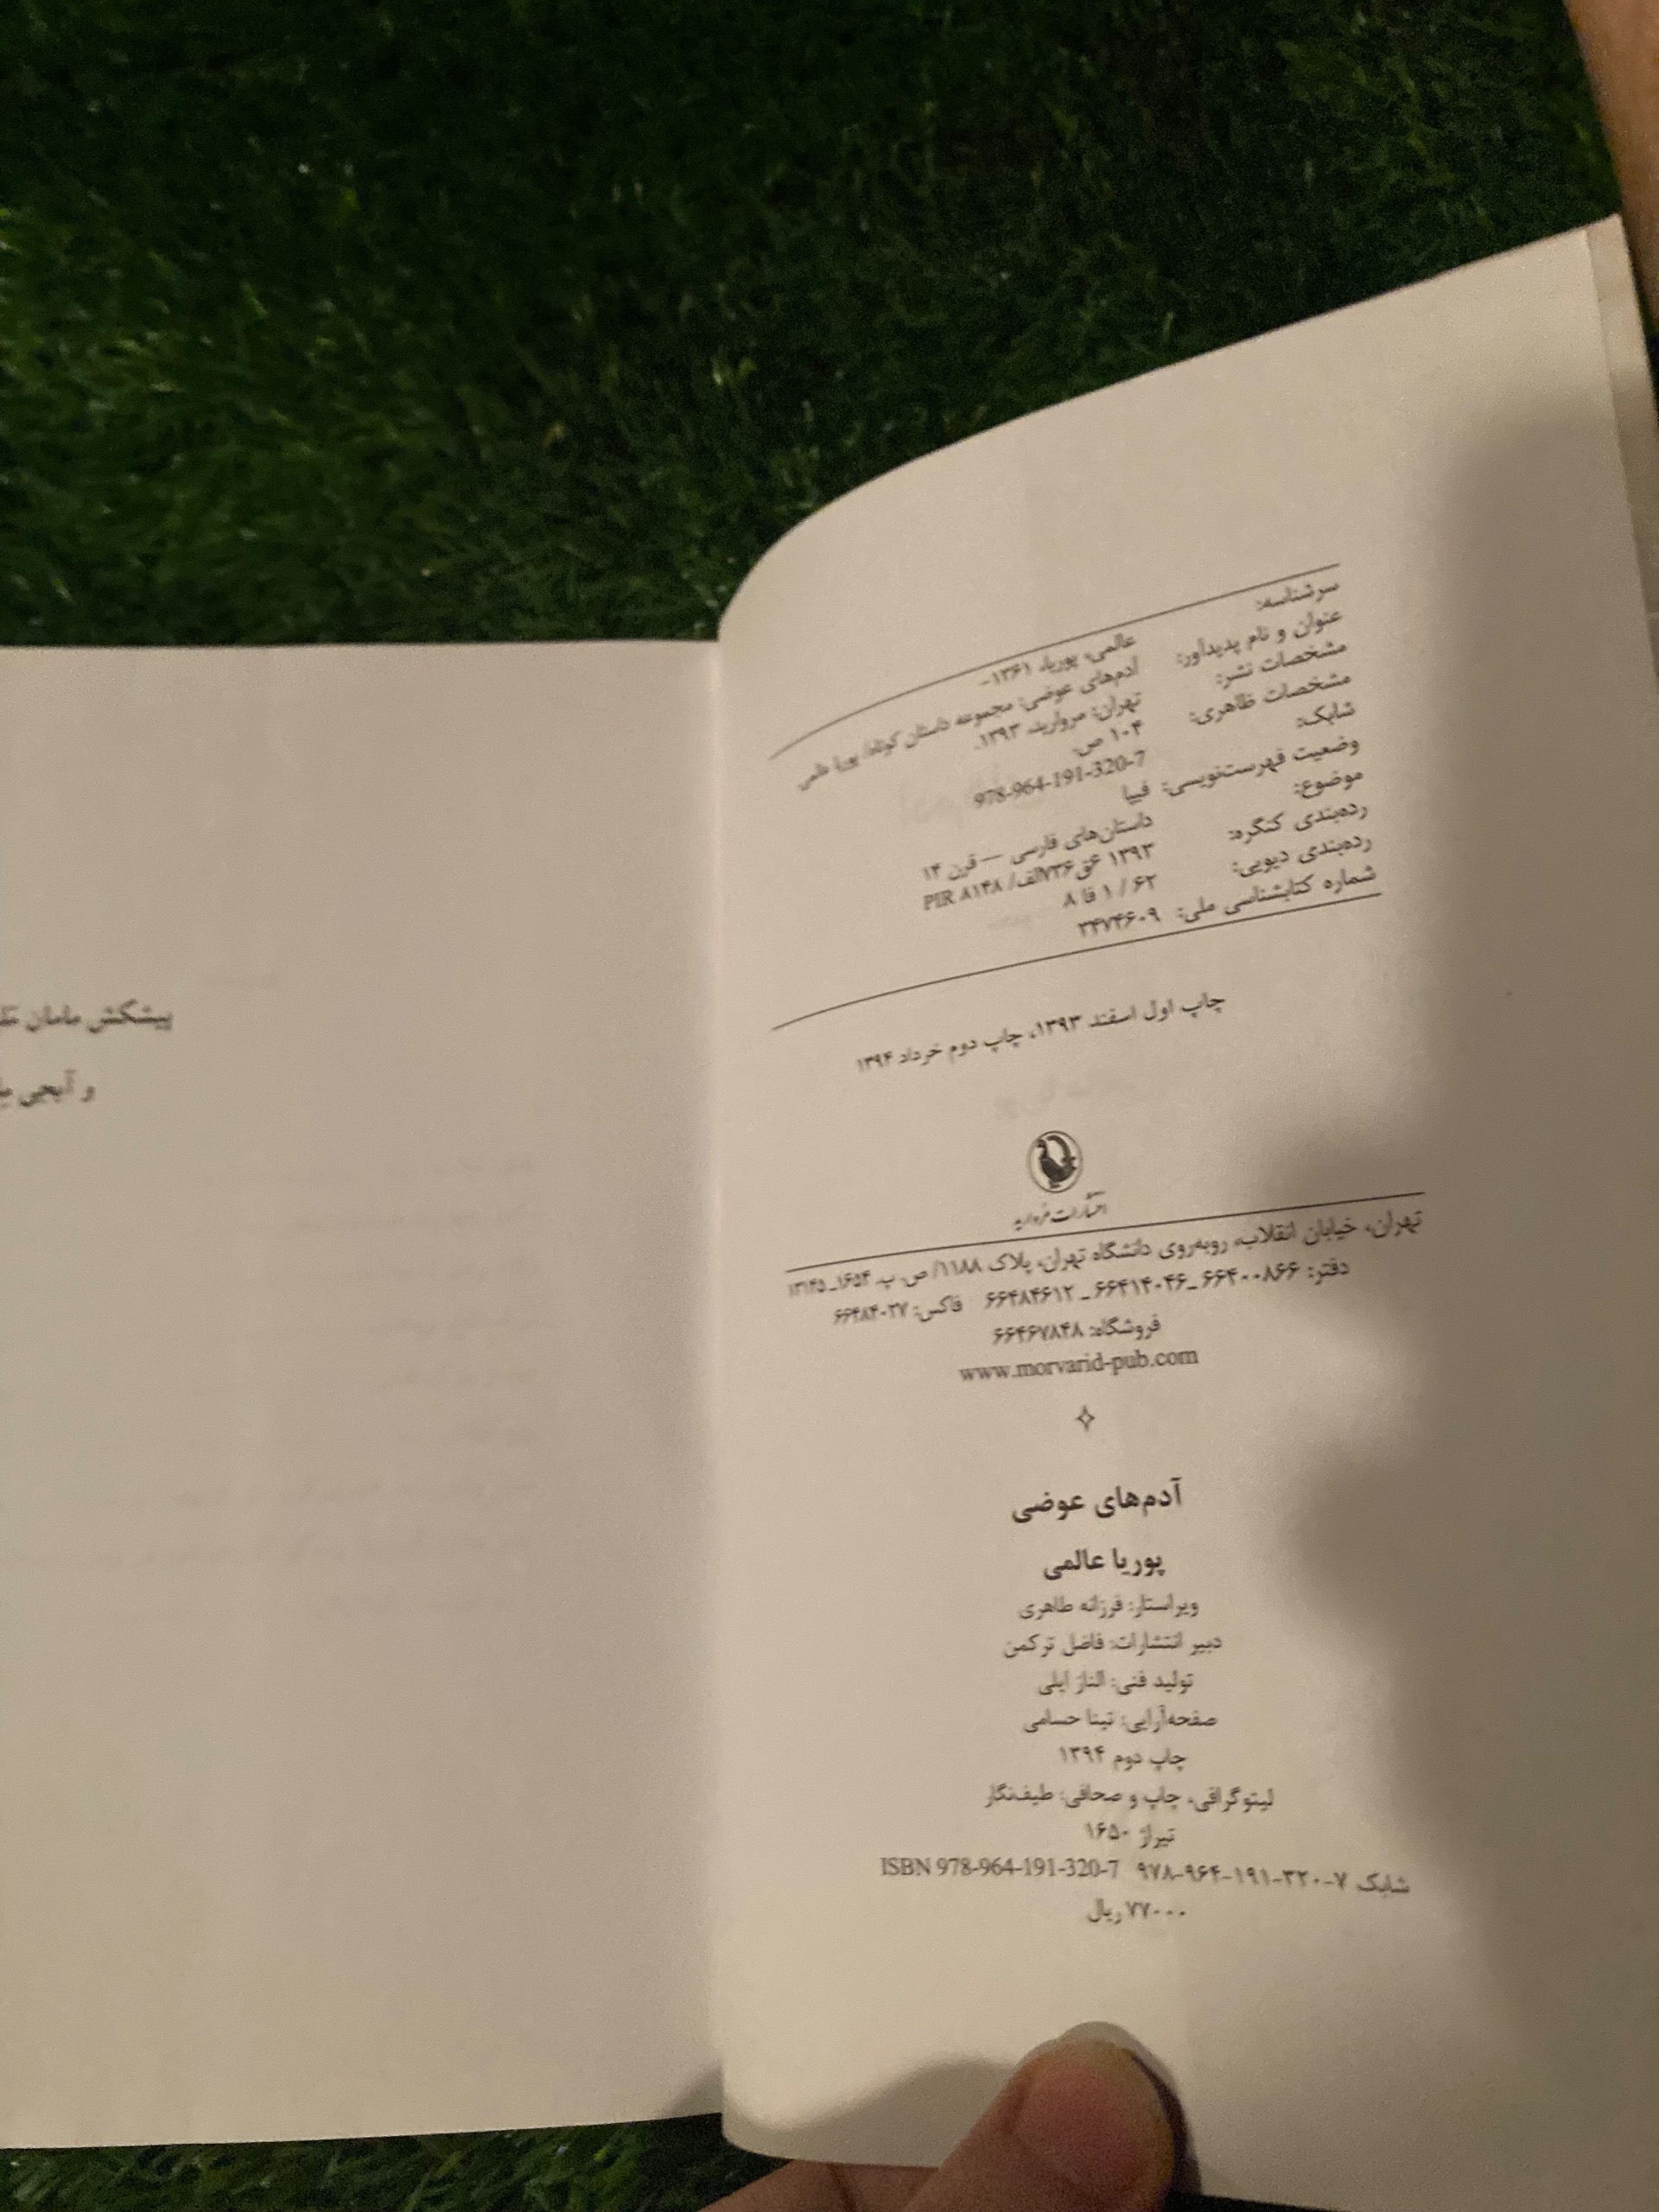 سرشناسه: عالمی، پوریا، ۱۳۶۱-
عنوان و نام پدیدآور: آدم‌های عوضی: مجموعه داستان کوتاه/ پوریا عالمی
مشخصات نشر: تهران: مروارید، ۱۳۹۳.
مشخصات ظاهری: ۱۰۴ ص.
شابک: 978-964-191-320-7
وضعیت فهرست‌نویسی: فیپا
موضوع: داستان‌های فارسی — قرن ۱۴
رده‌بندی کنگره: ۱۳۹۳ ۷۳۶الف/ PIR ۸۱۴۸
رده‌بندی دیویی: ۶۲ / ۱ فا ۸
شماره کتابشناسی ملی: ۳۴۷۴۶۰۹
چاپ اول اسفند ۱۳۹۳، چاپ دوم خرداد ۱۳۹۴
انتشارات مروارید
تهران، خیابان انقلاب، روبه‌روی دانشگاه تهران، پلاک ۱۱۸۸/ ص. پ. ۱۶۵۴ـ۱۳۱۴۵
دفتر: ۶۶۴۰۰۸۶۶ ـ ۶۶۴۱۴۰۴۶ ـ ۶۶۴۸۴۶۱۲ فاکس: ۶۶۴۸۴۰۲۷
فروشگاه: ۶۶۴۶۷۸۴۸
www.morvarid-pub.com
آدم‌های عوضی
پوریا عالمی
ویراستار: فرزانه طاهری
دبیر انتشارات: فاضل ترکمن
تولید فنی: الناز ایلی
صفحه‌آرایی: تینا حسامی
چاپ دوم ۱۳۹۴
لیتوگرافی، چاپ و صحافی: طیف‌نگار
تیراژ ۱۶۵۰
شابک ۷-۳۲۰-۱۹۱-۹۶۴-۹۷۸ ISBN 978-964-191-320-7
۷۷۰۰۰ ریال
پیشکش مامان
و آبجی